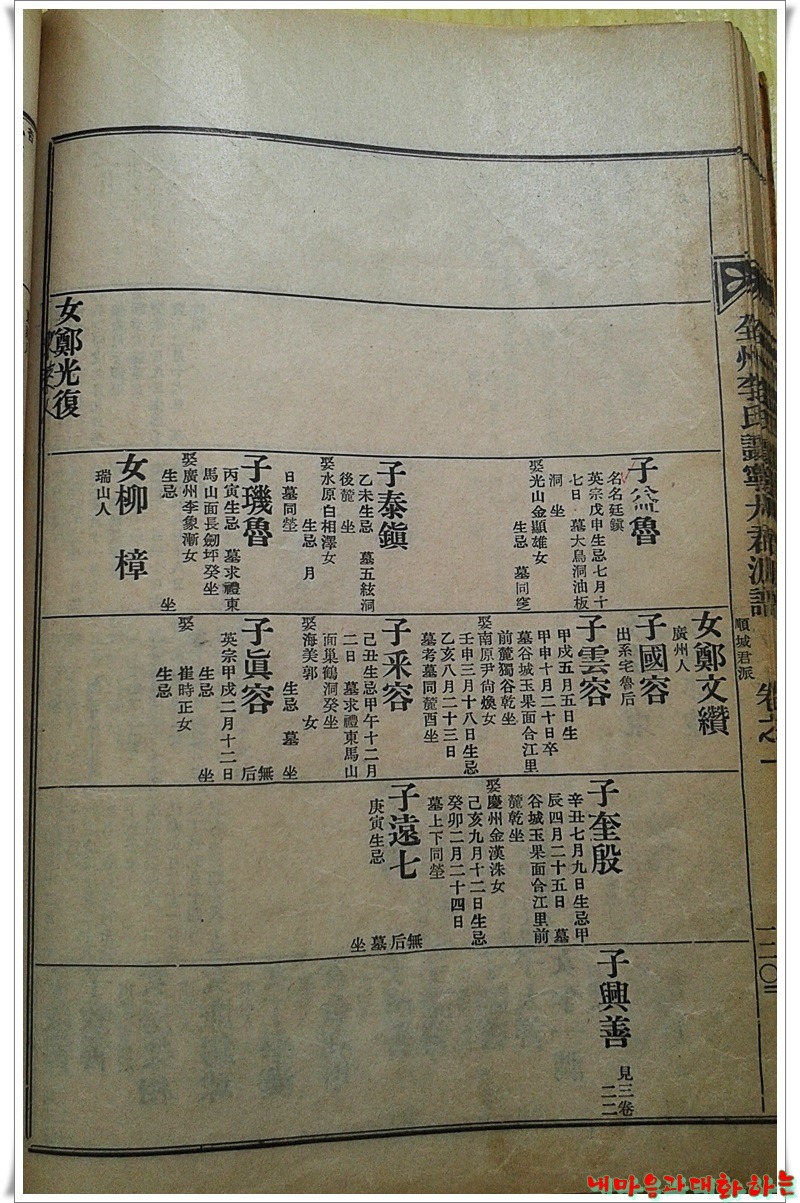 全州李氏讓寧大君派譜
順城君派
卷之一
一二〇
女鄭光復
子益魯
名名廷鎭
英宗戊申生忌七月十
七日 墓大鳥洞油板
洞 坐
娶光山金顯雄女
生忌 墓同窆
子泰鎭
乙未生忌 墓五絃洞
後麓 坐
娶水原白相澤女
生忌 月
日墓同塋
子璣魯
丙寅生忌 墓求禮東
馬山面長劒坪癸坐
娶廣州李象漸女
生忌 坐
女柳 樟
瑞山人
女鄭文纘
廣州人
子國容
出系宅魯后
子雲容
甲戌五月五日生
甲申十月二十日卒
墓谷城玉果面合江里
前麓獨谷乾坐
娶南原尹尙煥女
壬申三月十八日生忌
乙亥八月二十三日
墓考墓同麓酉坐
子采容
己丑生忌甲午十二月
二日 墓求禮東馬山
面巢鶴洞癸坐
娶海美郭 女
生忌 墓 坐
子眞容
英宗甲戌二月十二日
生忌 坐
娶 崔時正女
生忌
無后
子奎殷
辛丑七月九日生忌甲
辰四月二十五日 墓
谷城玉果面合江里前
麓乾坐
娶慶州金漢洙女
己亥九月十二日生忌
癸卯二月二十四日
墓上下同塋
子遠七
庚寅生忌
無后墓 坐
子興善
見三卷
二二
내마음과대화하는